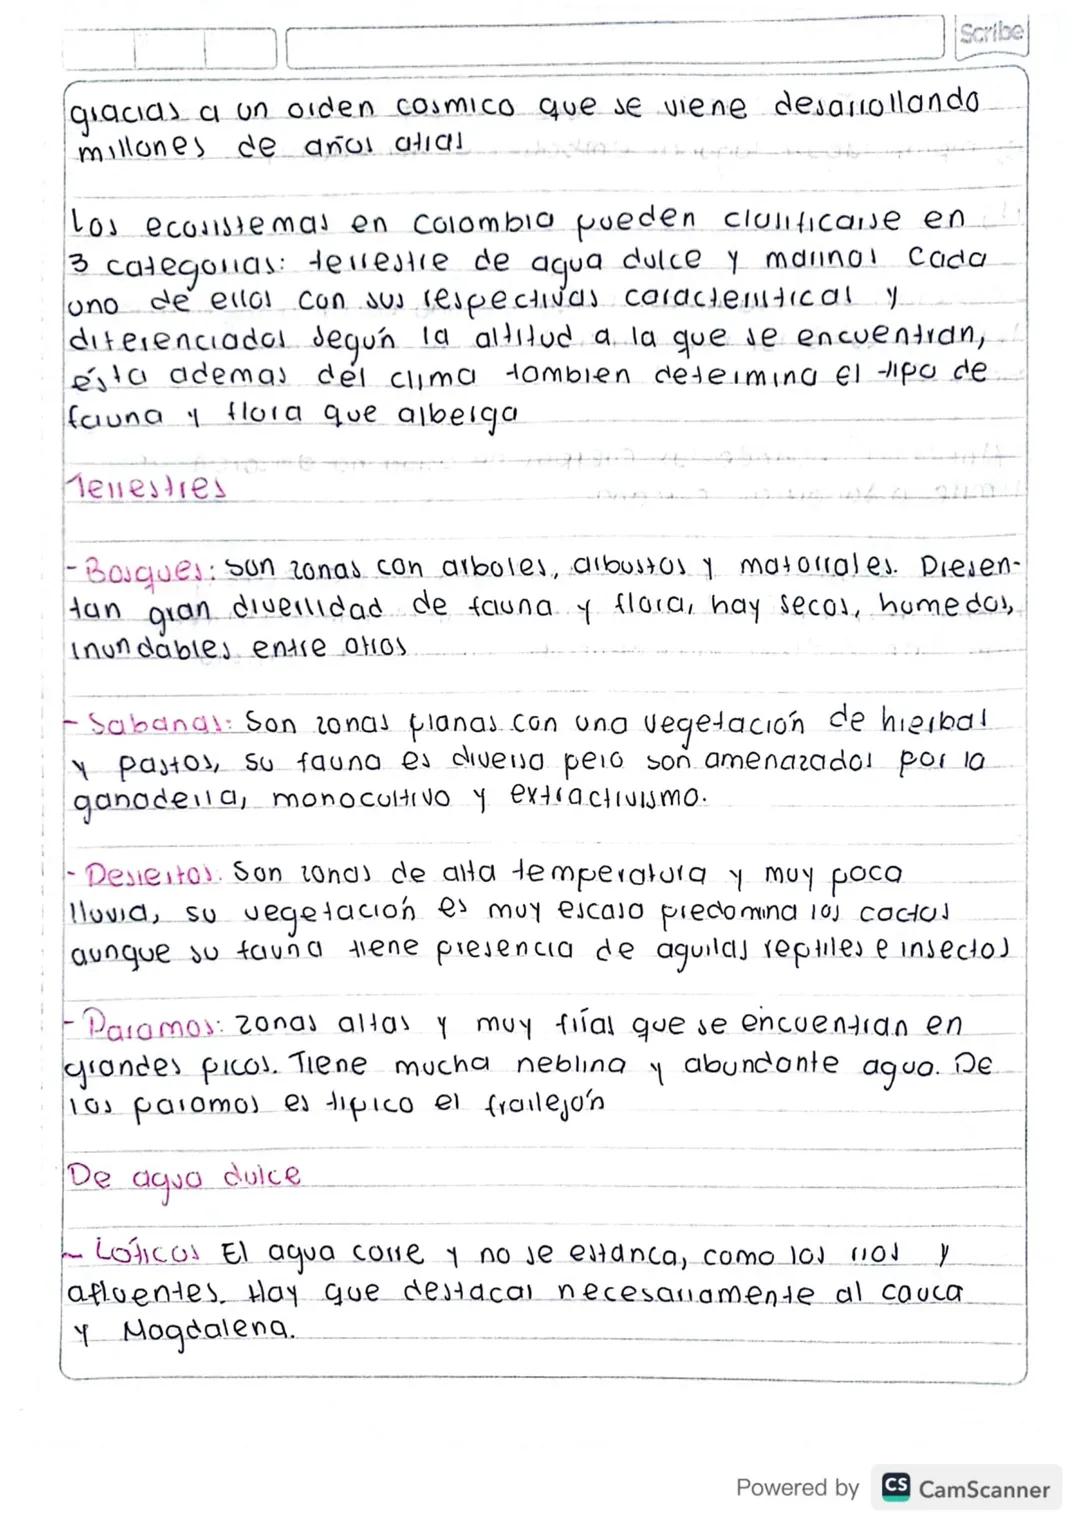 Scribe
gracias a un orden cosmico que se viene desarrollando
millones de años atras
Los ecosistemas en Colombia pueden clasificarse en
3 categorias: terrestre de agua dulce y marinos Cada
uno de ellos con sus respectivas caracteristicas y
diferenciados según la altitud a la que se encuentran,
ésta ademas del clima tambien determina el tipo de
fauna y flora que alberga
Terrestres
- Bosques: Son zonas con arboles, arbustos y matorrales. Presen-
tan gran diversidad de fauna y flora, hay secos, humedos,
inundables entre otros
- Sabanas: Son zonas planas con una vegetación de hierbas
y pastos, su fauna es diversa pero son amenazados por la
ganaderia, monocultivo y extractivismo.
- Desiertos. Son zonas de alta temperatura y muy poca
lluvia, su vegetación es muy escasa predomina los cactus
aunque su fauna tiene presencia de aguilas reptiles e insectos
- Paramos: zonas altas y muy frías que se encuentran en
grandes picos. Tiene mucha neblina y abundante agua. De
los paramos es tipico el frailejón
De agua dulce
- Lóticos El agua corre y no se estanca, como los rios y
afluentes. Hay que destacar necesariamente al cauca
y Magdalena.
Powered by CS CamScanner